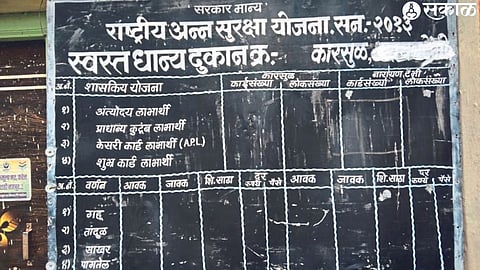 सकाळ
सरकार मान्य
राष्ट्रीय अन्न सुरक्षा योजना. सन. २०१३
स्वस्त धान्य दुकान क्र. कारसुळ
अ.नं. शासकिय योजना कारसुळ कार्डसंख्या लोकसंख्या नारायण टेंभी कार्डसंख्या लोकसंख्या
१) अंत्योदय लाभार्थी
२) प्राधान्य कुटूंब लाभार्थी
३) केसरी कार्ड लाभार्थी (A.P.L)
४) शुभ्र कार्ड लाभार्थी
अ.नं. वर्णन आवक जावक शि.साठा दर रुपये पैसे आवक जावक शि.साठा दर रुपये पैसे
१) गहू
२) तांदूळ
३) साखर
४) पामतेल